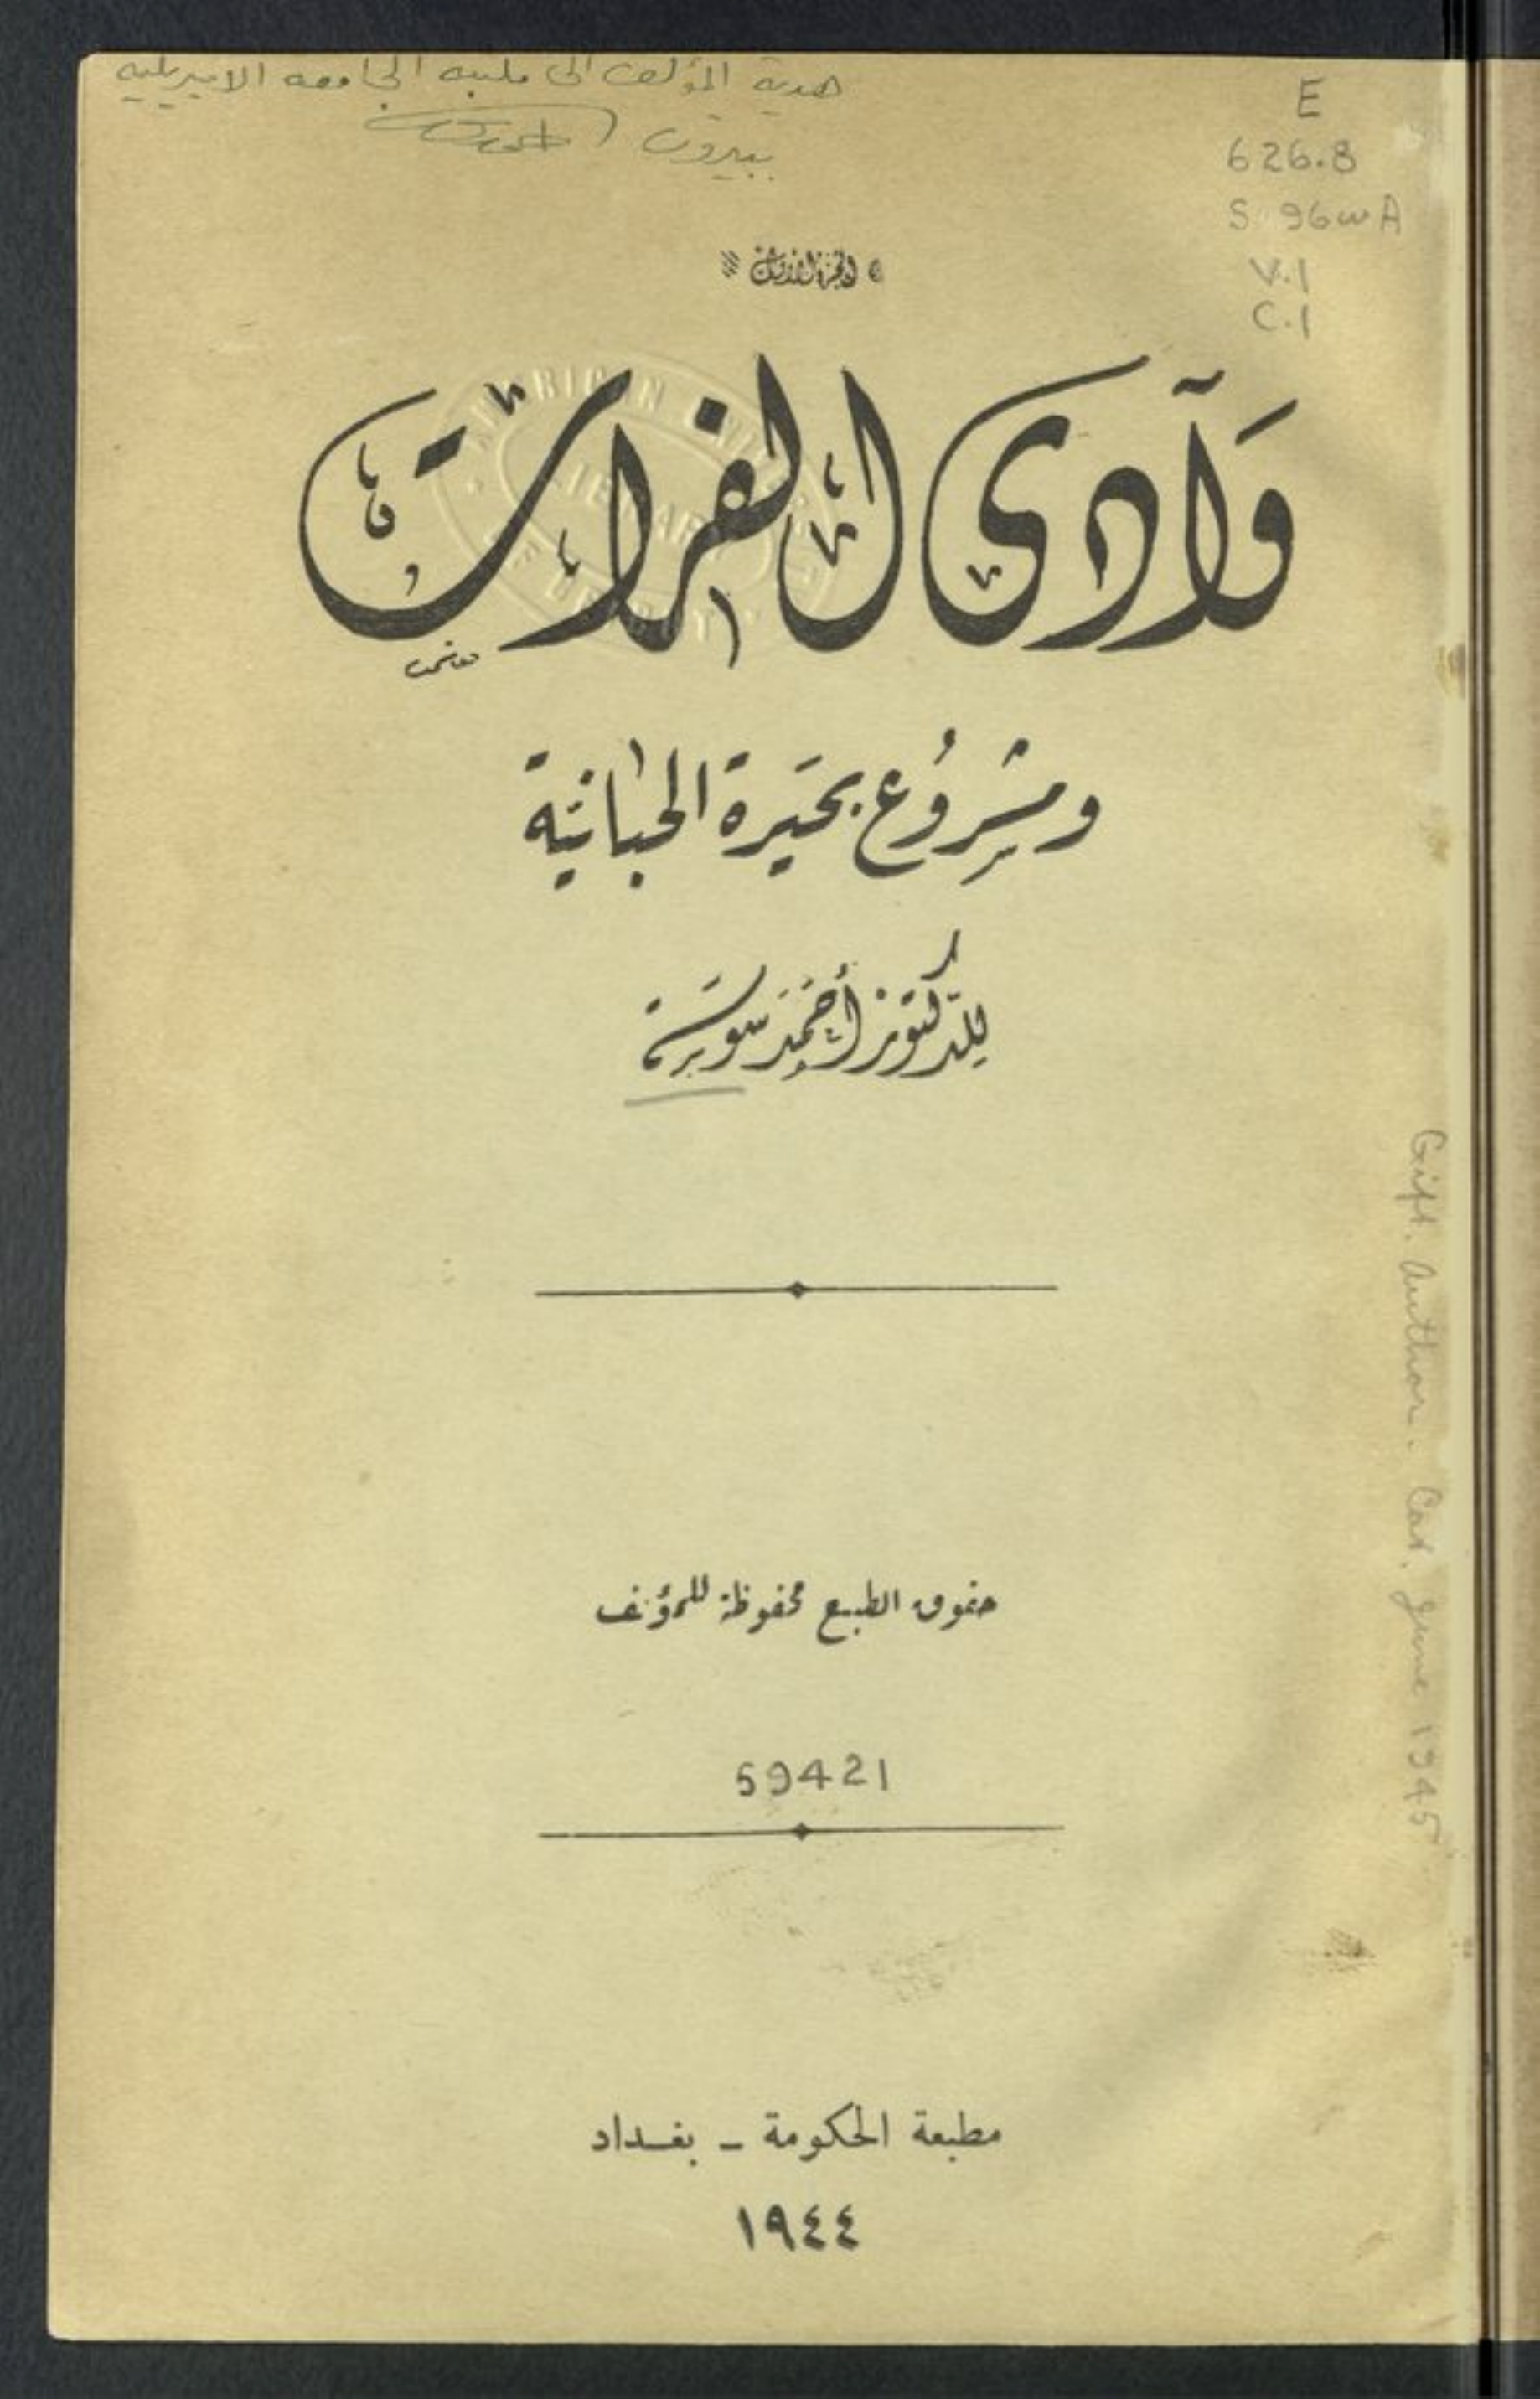 هدية المؤلف الى مكتبة الجامعة الاميريكية
ببيروت
E
626.8
S 96wA
V.1
C.1
الجزء الأول
وَآدى الفرات
ومشروُع بحَيرة الحبانيّة
للدكتور أحمد سوسَة
حقوق الطبع محفوظة للمؤلف
59421
مطبعة الحكومة - بغداد
١٩٤٤
Gift. Author. Cat. June 1945